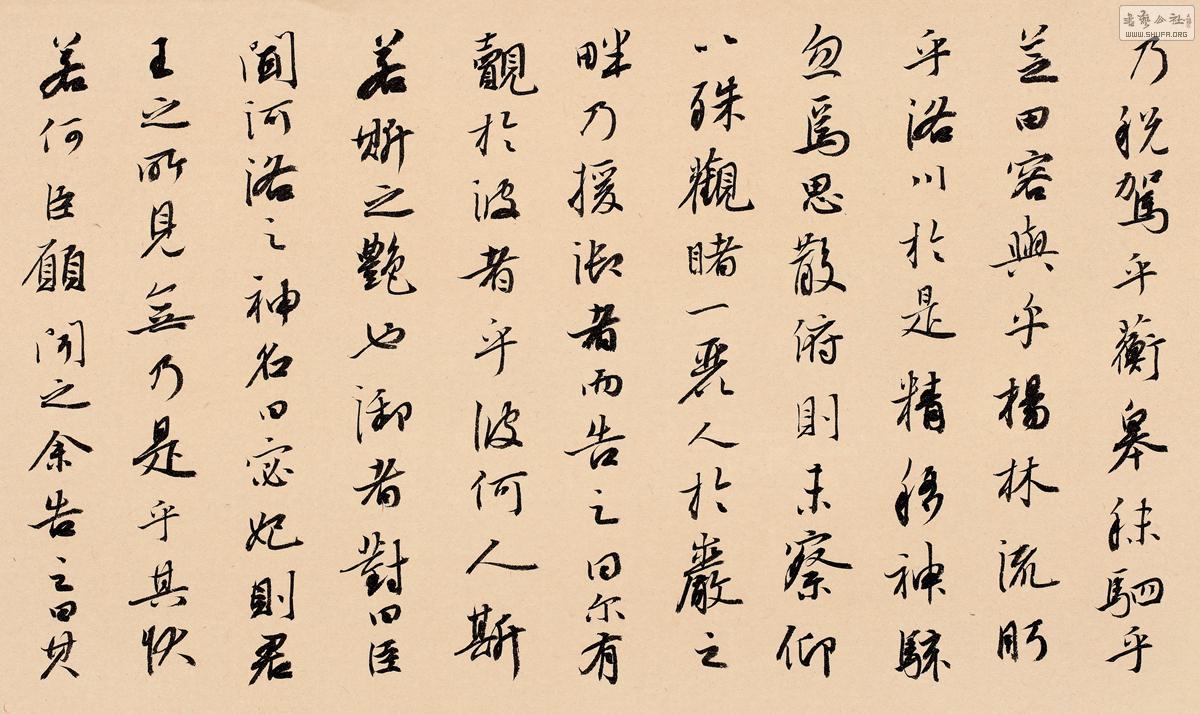 乃稅駕乎蘅皋秣駟乎
芝田容與乎楊林流眄
乎洛川於是精移神駭
忽焉思散俯則未察仰
以殊觀睹一麗人於巖之
畔乃援御者而告之曰尔有
覿於彼者乎彼何人斯
若斯之艷也御者對曰臣
聞河洛之神名曰宓妃則君
王之所見無乃是乎其狀
若何臣願聞之余告之曰其
WWW.SHUFA.ORG